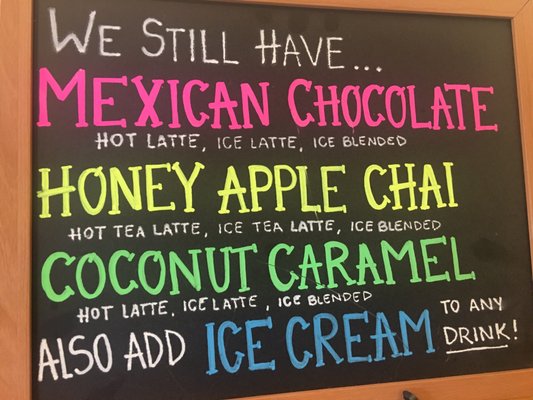 We Still Have...
Mexican Chocolate
Hot Latte, Ice Latte, Ice Blended
Honey Apple Chai
Hot Tea Latte, Ice Tea Latte, Ice Blended
Coconut Caramel
Hot Latte, Ice Latte, Ice Blended
Also Add Ice Cream to any drink!